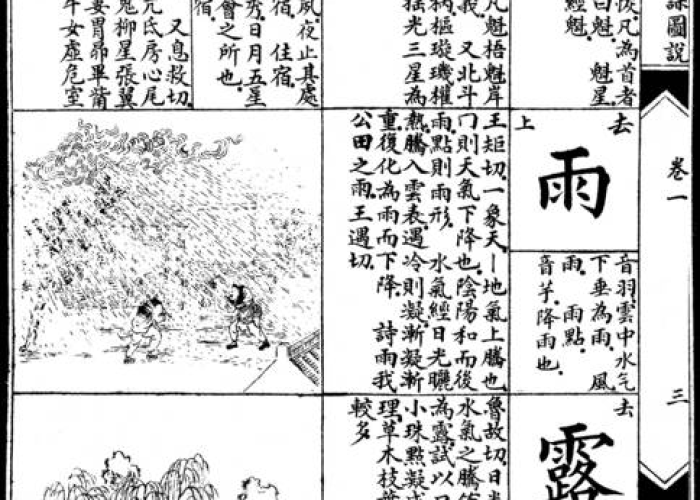 課圖說
卷一
三
恢.凡為首者
曰魁. 魁星
經魁.
凡魁梧魁岸
我. 又北斗
柄樞璇璣權
搖光三星為
夙夜止其處
宿. 住宿.
秀.日月五星
會之所也.
宿.
又息救切.
亢氐房心尾
鬼柳星張翼
婁胃昴畢觜
牛女虛危室
去
上
雨
音羽.雲中水气
下垂為雨. 風
雨. 雨點.
音芋.降雨也.
王矩切.一象天.丨地氣上騰也.
冂則天氣下降也.陰陽和而後
雨.點則雨形. 水氣經日光曬
熱騰入雲表.遇冷則凝.漸凝漸
重.復化為雨而下降. 詩雨我
公田之雨.王遇切.
去
露
魯故切.日光
水氣之騰
為露.試以
小珠點.凝
理.草木枝葉
較多.